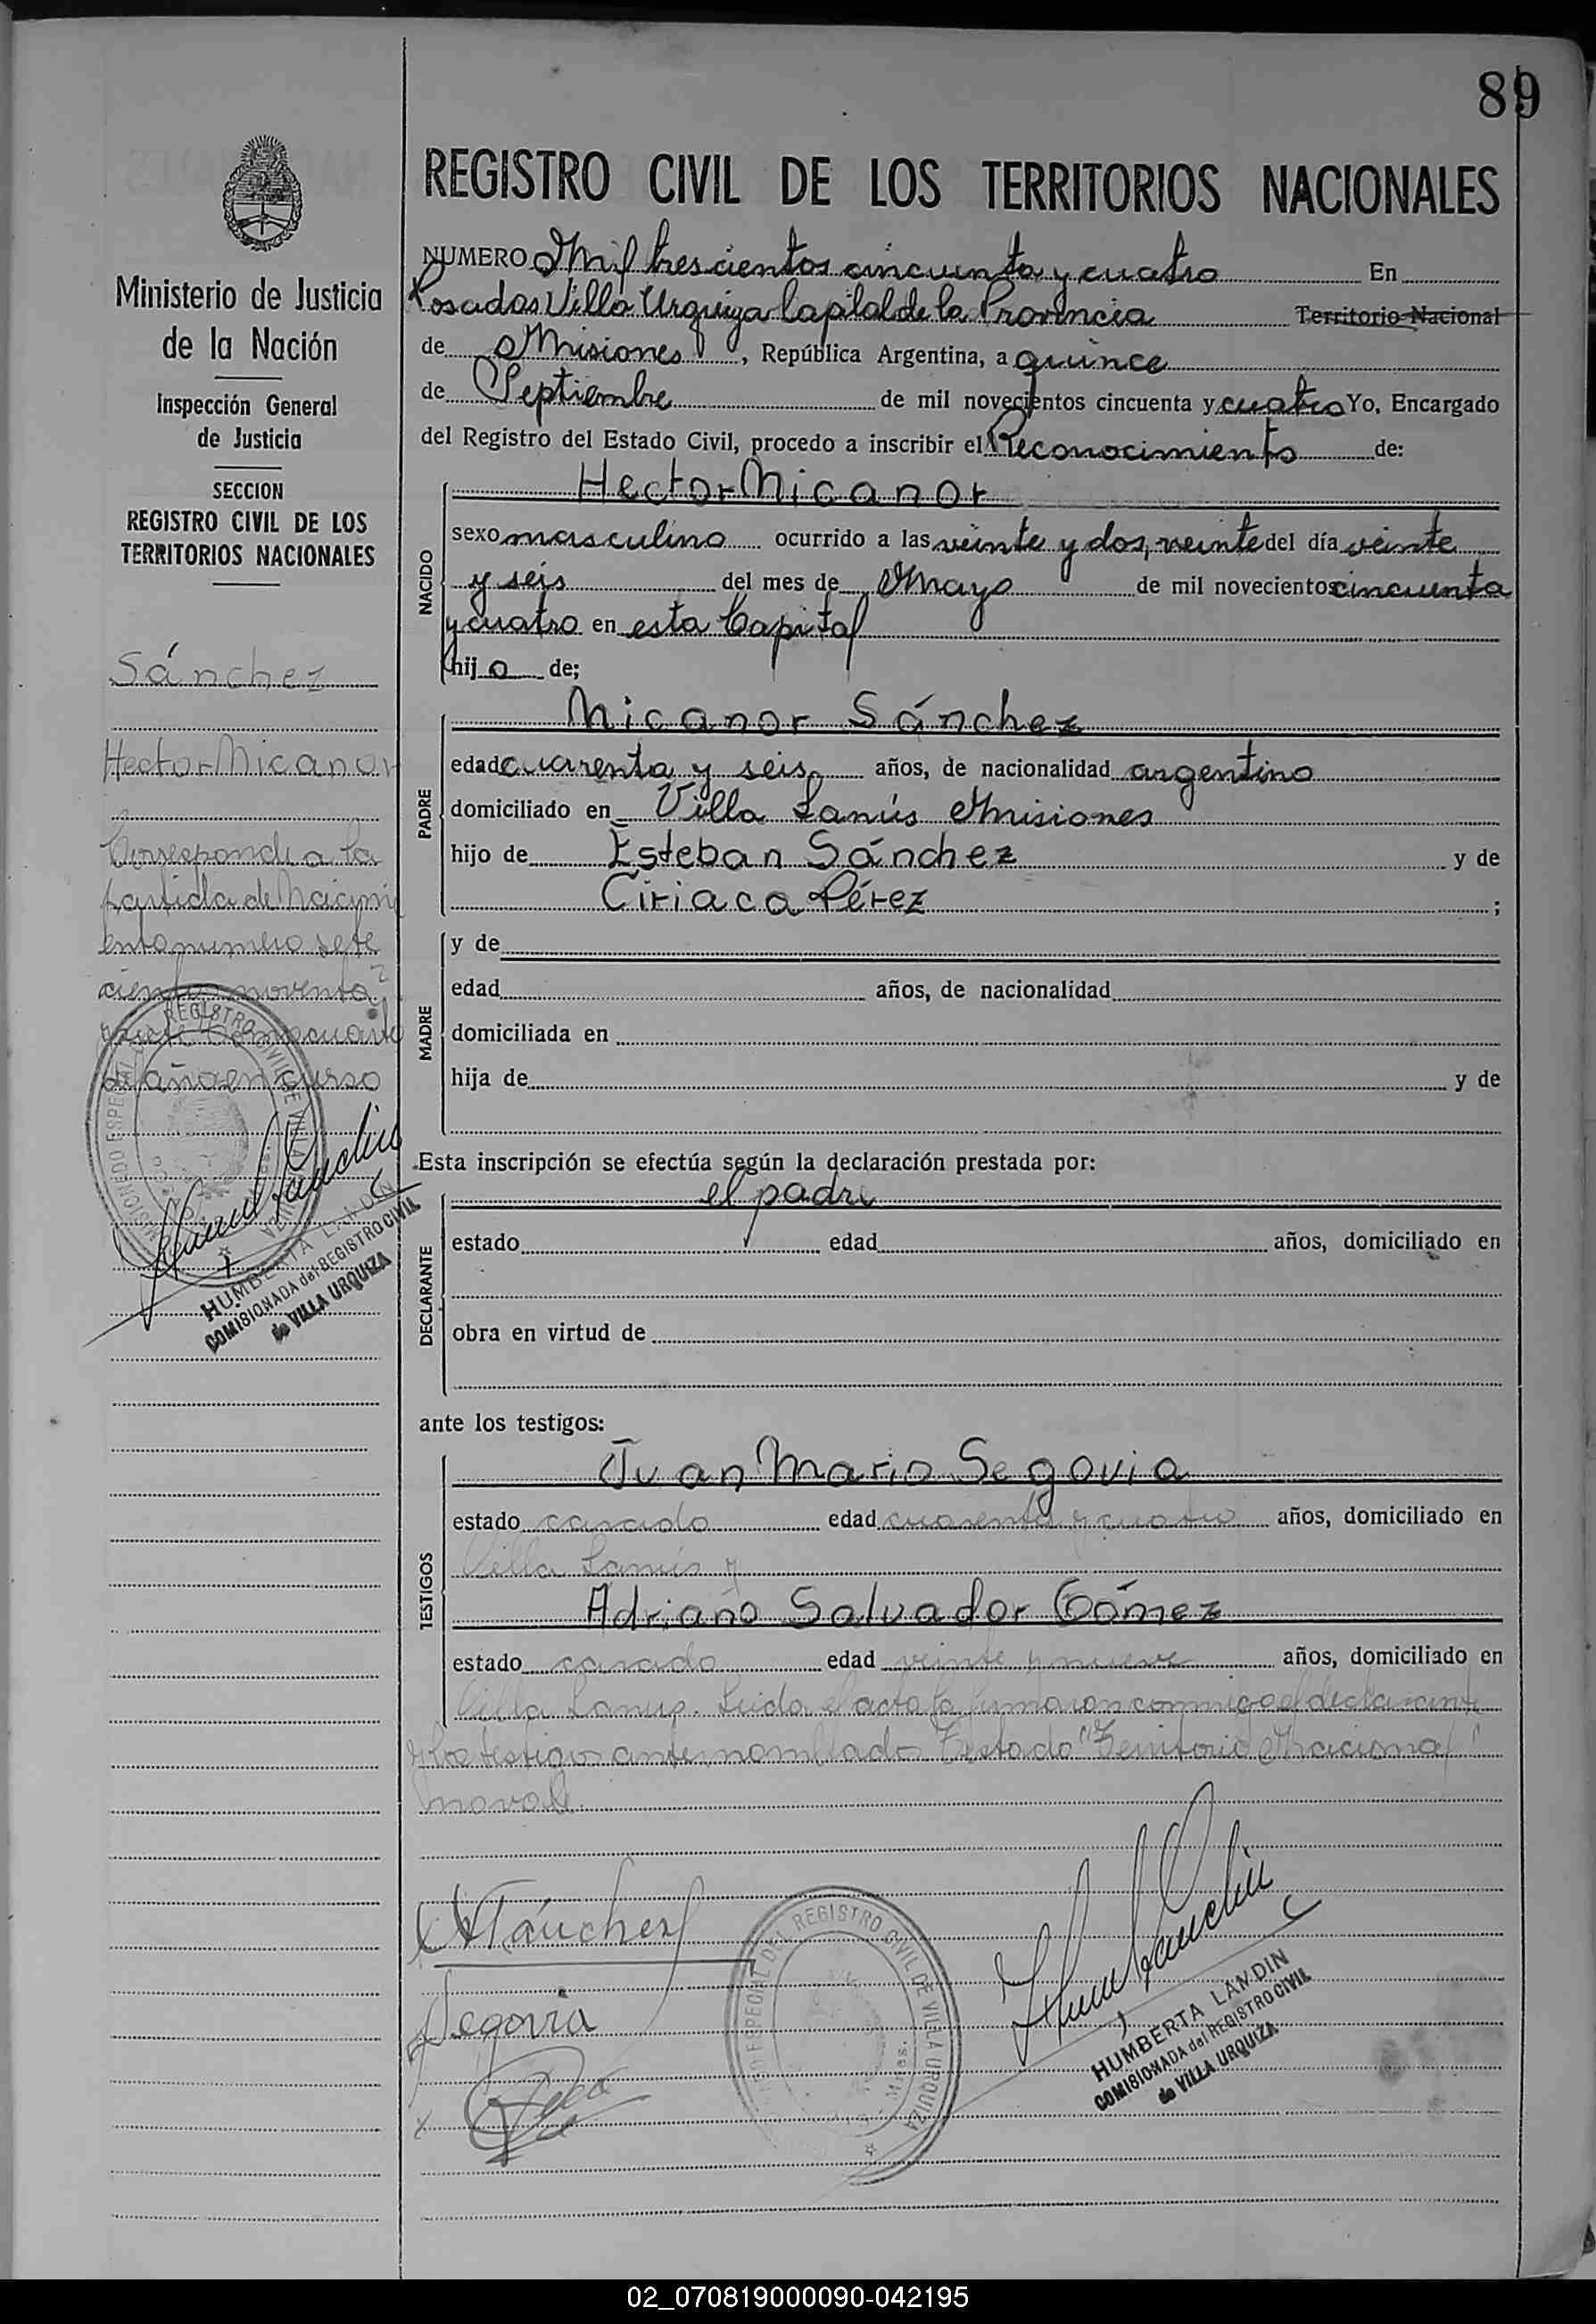 89
Ministerio de Justicia
de la Nación
Inspección General
de Justicia
SECCION
REGISTRO CIVIL DE LOS
TERRITORIOS NACIONALES
Sánchez
Hector Nicanor
Corresponde a la
partida de Nacimi
ento numero sete
cientos noventa
y siete tomo cuarto
del año en curso
HUMBERTA LANDIN
COMISIONADA del REGISTRO CIVIL
de VILLA URQUIZA
REGISTRO CIVIL DE LOS TERRITORIOS NACIONALES
NUMERO Mil trescientos cincuenta y cuatro En
Posadas Villa Urquiza Capital de la Provincia Territorio Nacional
de Misiones, República Argentina, a quince
de Septiembre de mil novecientos cincuenta y cuatro Yo, Encargado
del Registro del Estado Civil, procedo a inscribir el Reconocimiento de:
NACIDO
Hector Nicanor
sexo masculino ocurrido a las veinte y dos, veinte del día veinte
y seis del mes de Mayo de mil novecientos cincuenta
y cuatro en esta Capital
hijo de;
PADRE
Nicanor Sánchez
edad cuarenta y seis años, de nacionalidad argentino
domiciliado en Villa Lanús Misiones
hijo de Esteban Sánchez y de
Ciriaca Pérez ;
MADRE
y de
edad años, de nacionalidad
domiciliada en
hija de y de
Esta inscripción se efectúa según la declaración prestada por:
DECLARANTE
el padre
estado edad años, domiciliado en
obra en virtud de
ante los testigos:
TESTIGOS
Juan Mario Segovia
estado casado edad cuarenta y cuatro años, domiciliado en
Villa Lanús y
Adriano Salvador Gómez
estado casado edad veinte y nueve años, domiciliado en
Villa Lanus. Leida el acta la firmaron conmigo el declarante
y los testigos antes nombrados Testado "Territorio Nacional"
no vale.
NSánchez
Segovia
REGISTRO CIVIL DE VILLA URQUIZA
HUMBERTA LANDIN
COMISIONADA del REGISTRO CIVIL
de VILLA URQUIZA
02_070819000090-042195